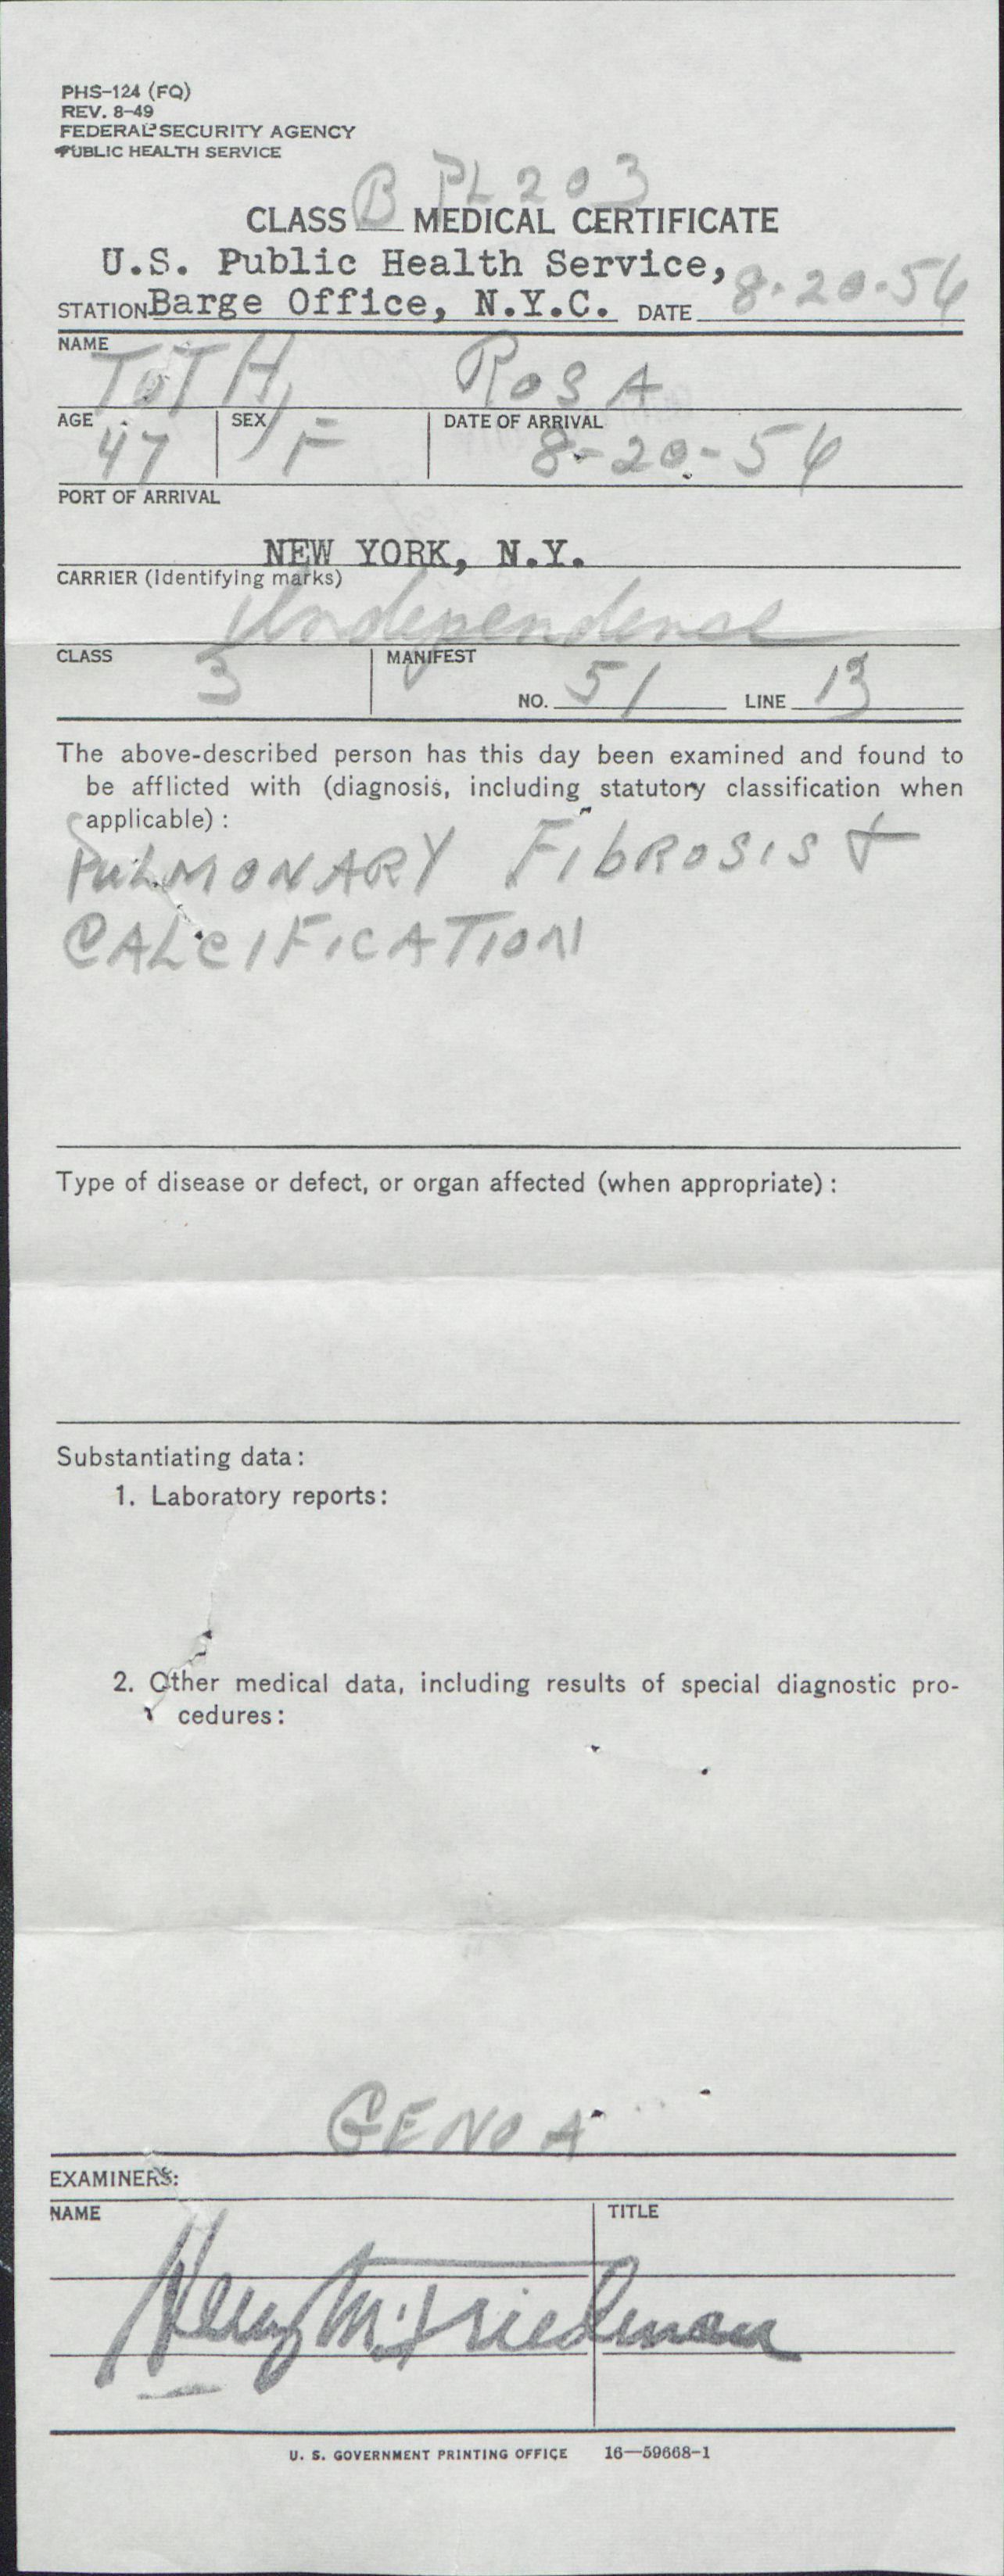 PHS-124 (FQ)
REV. 8-49
FEDERAL SECURITY AGENCY
PUBLIC HEALTH SERVICE
PL 203
CLASS B MEDICAL CERTIFICATE
U.S. Public Health Service,
STATION Barge Office, N.Y.C. DATE 8-20-54
NAME
TOTH, ROSA
AGE SEX DATE OF ARRIVAL
47 F 8-20-54
PORT OF ARRIVAL
NEW YORK, N.Y.
CARRIER (Identifying marks)
Independence
CLASS MANIFEST
3 NO. 51 LINE 13
The above-described person has this day been examined and found to
be afflicted with (diagnosis, including statutory classification when
applicable):
PULMONARY FIBROSIS +
CALCIFICATION
Type of disease or defect, or organ affected (when appropriate):
Substantiating data:
1. Laboratory reports:
2. Other medical data, including results of special diagnostic pro-
cedures:
GENOA
EXAMINERS:
NAME TITLE
Henry M. Friedman
U. S. GOVERNMENT PRINTING OFFICE 16—59668-1